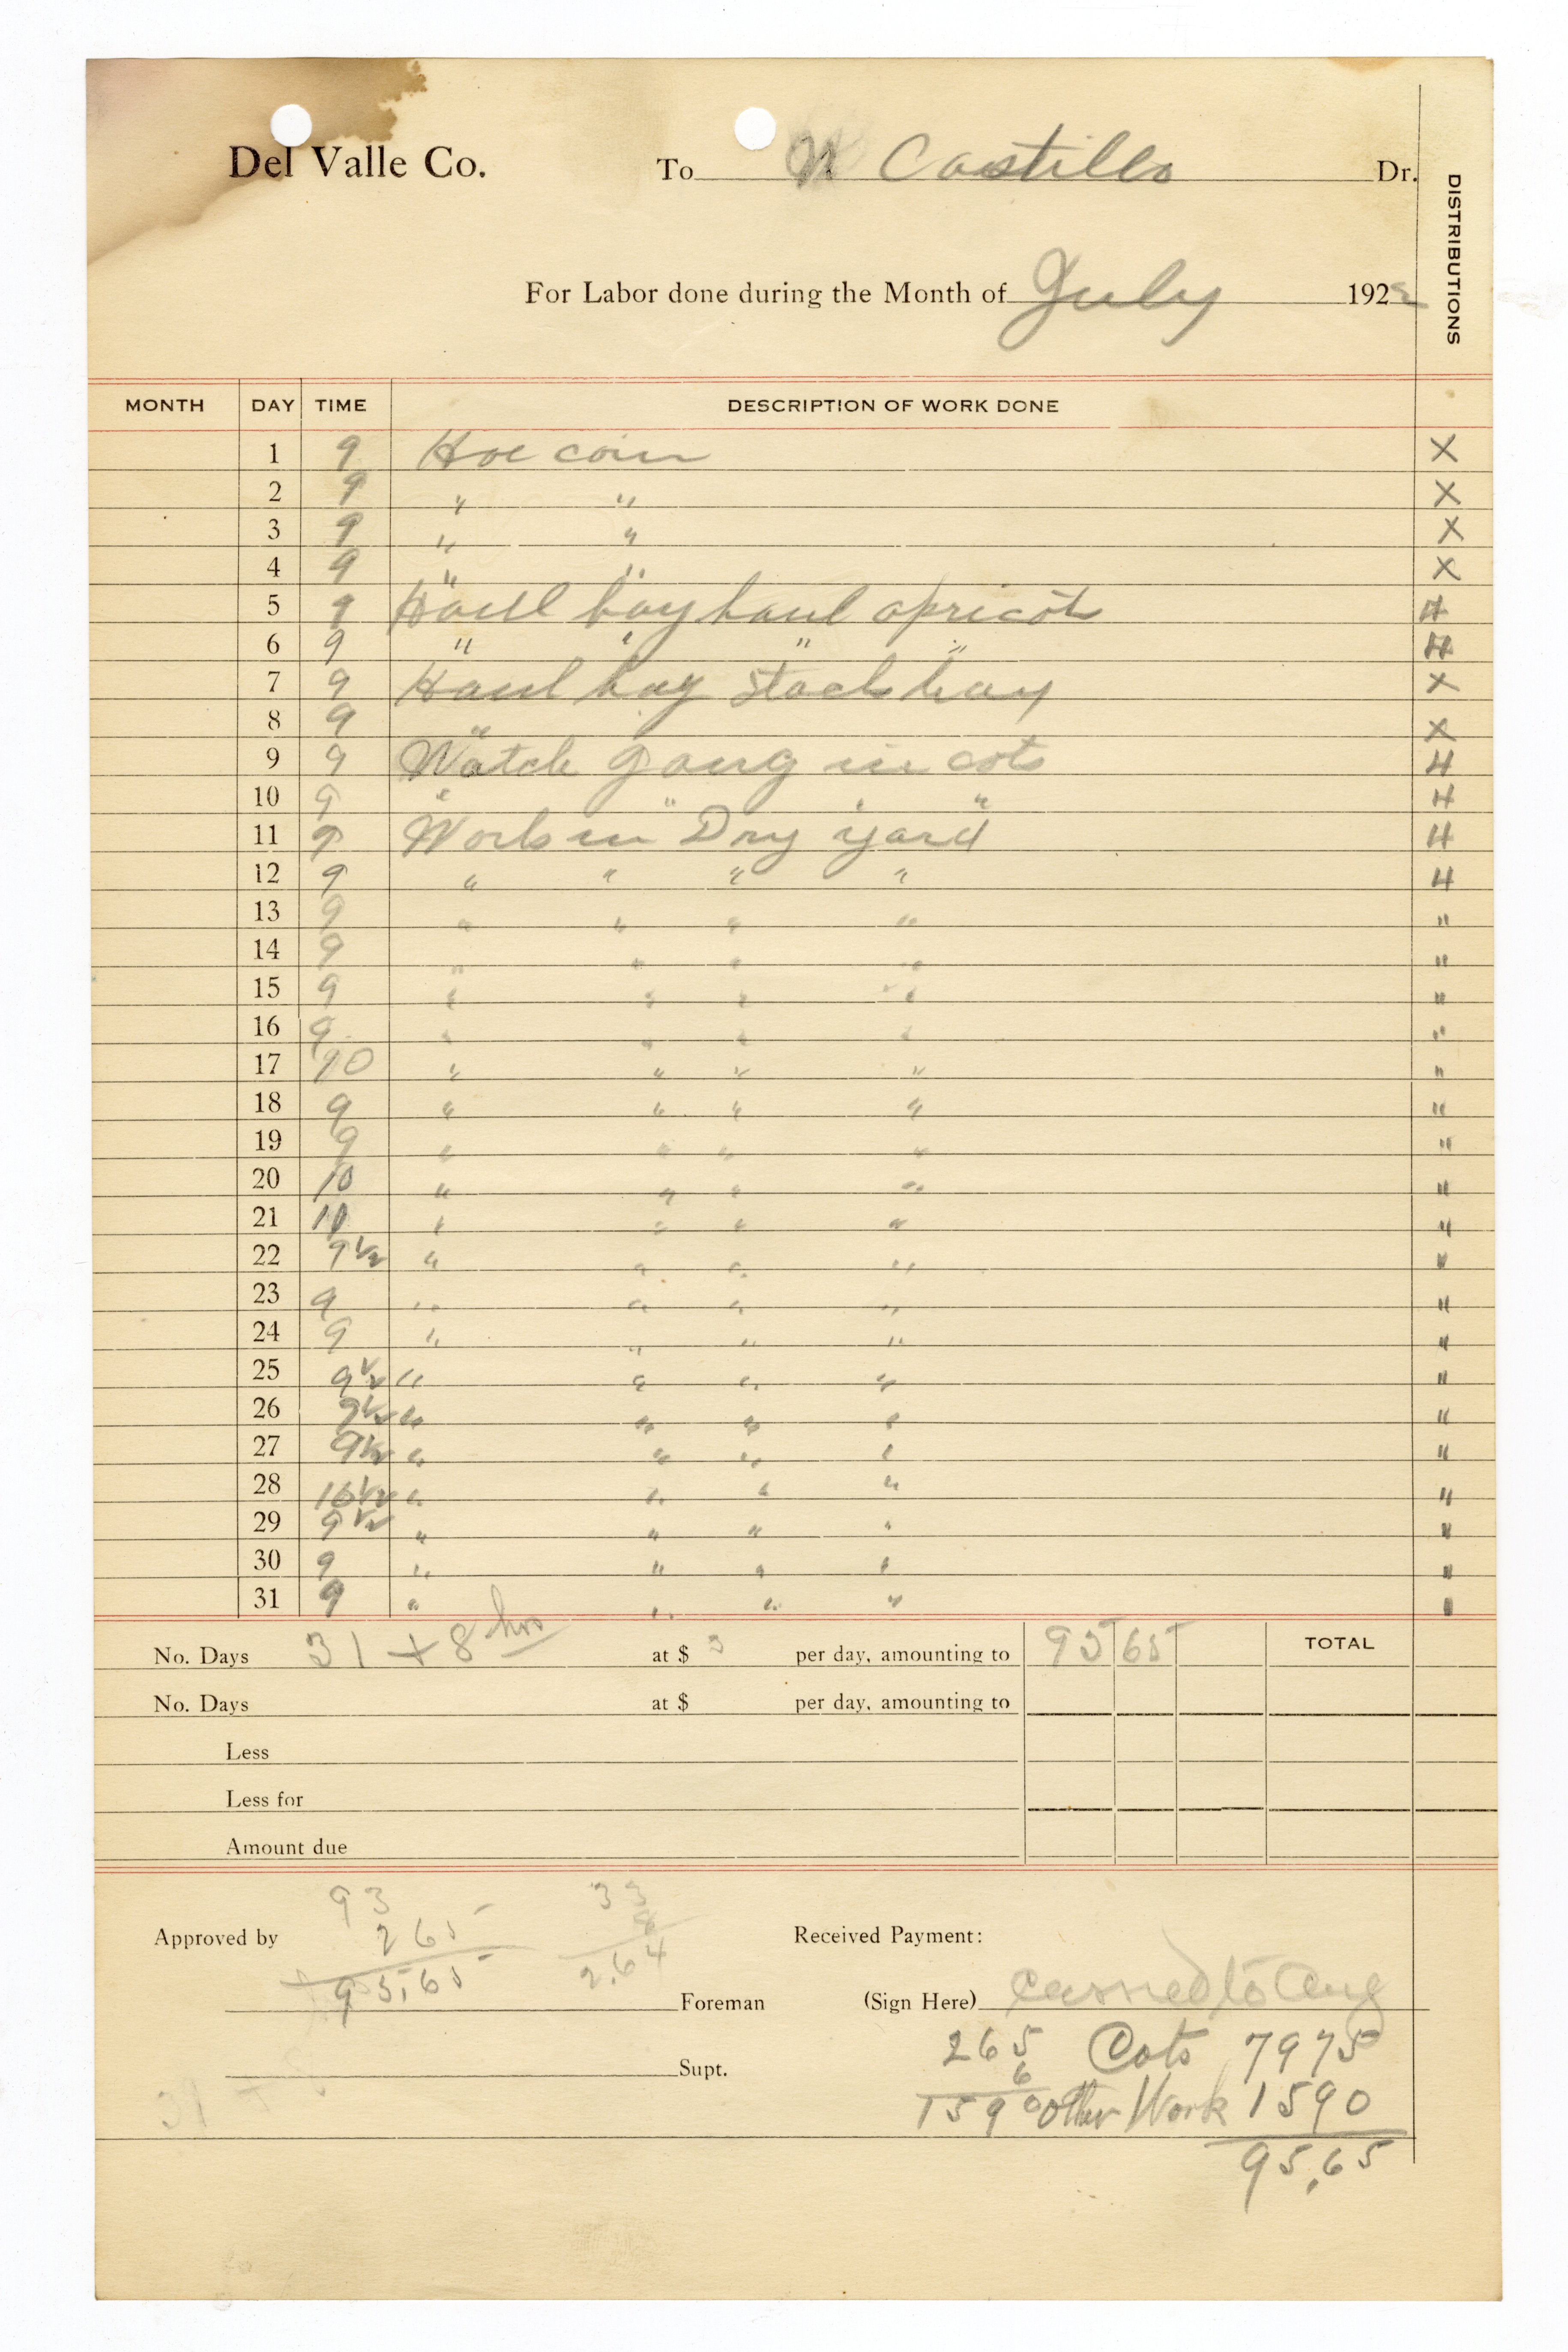 Del Valle Co. To N Castillo Dr.
DISTRIBUTIONS
For Labor done during the Month of July 1922
MONTH DAY TIME DESCRIPTION OF WORK DONE
1 9 Hoe corn X
2 9 " " X
3 9 " " X
4 9 " " X
5 9 Haul hay haul apricots H
6 9 " " " " H
7 9 Haul hay stack hay X
8 9 " X
9 9 Watch gang in cots H
10 9 " " " " H
11 9 Work in Dry yard H
12 9 " " " " H
13 9 " " " " "
14 9 " " " " "
15 9 " " " " "
16 9 " " " " "
17 10 " " " " "
18 9 " " " " "
19 9 " " " " "
20 10 " " " " "
21 10 " " " " "
22 9 1/2 " " " " "
23 9 " " " " "
24 9 " " " " "
25 9 1/2 " " " " "
26 9 1/2 " " " " "
27 9 1/2 " " " " "
28 10 1/2 " " " " "
29 9 1/2 " " " " "
30 9 " " " " "
31 9 " " " " "
No. Days 31 + 8 hrs at $ 3 per day, amounting to 95 65 TOTAL
No. Days at $ per day, amounting to
Less
Less for
Amount due
93 33
Approved by 265 8 Received Payment:
95,65 2.64
Foreman (Sign Here) carried to Aug
265 Cots 7975
Supt. 6
1590 Other Work 1590
95.65